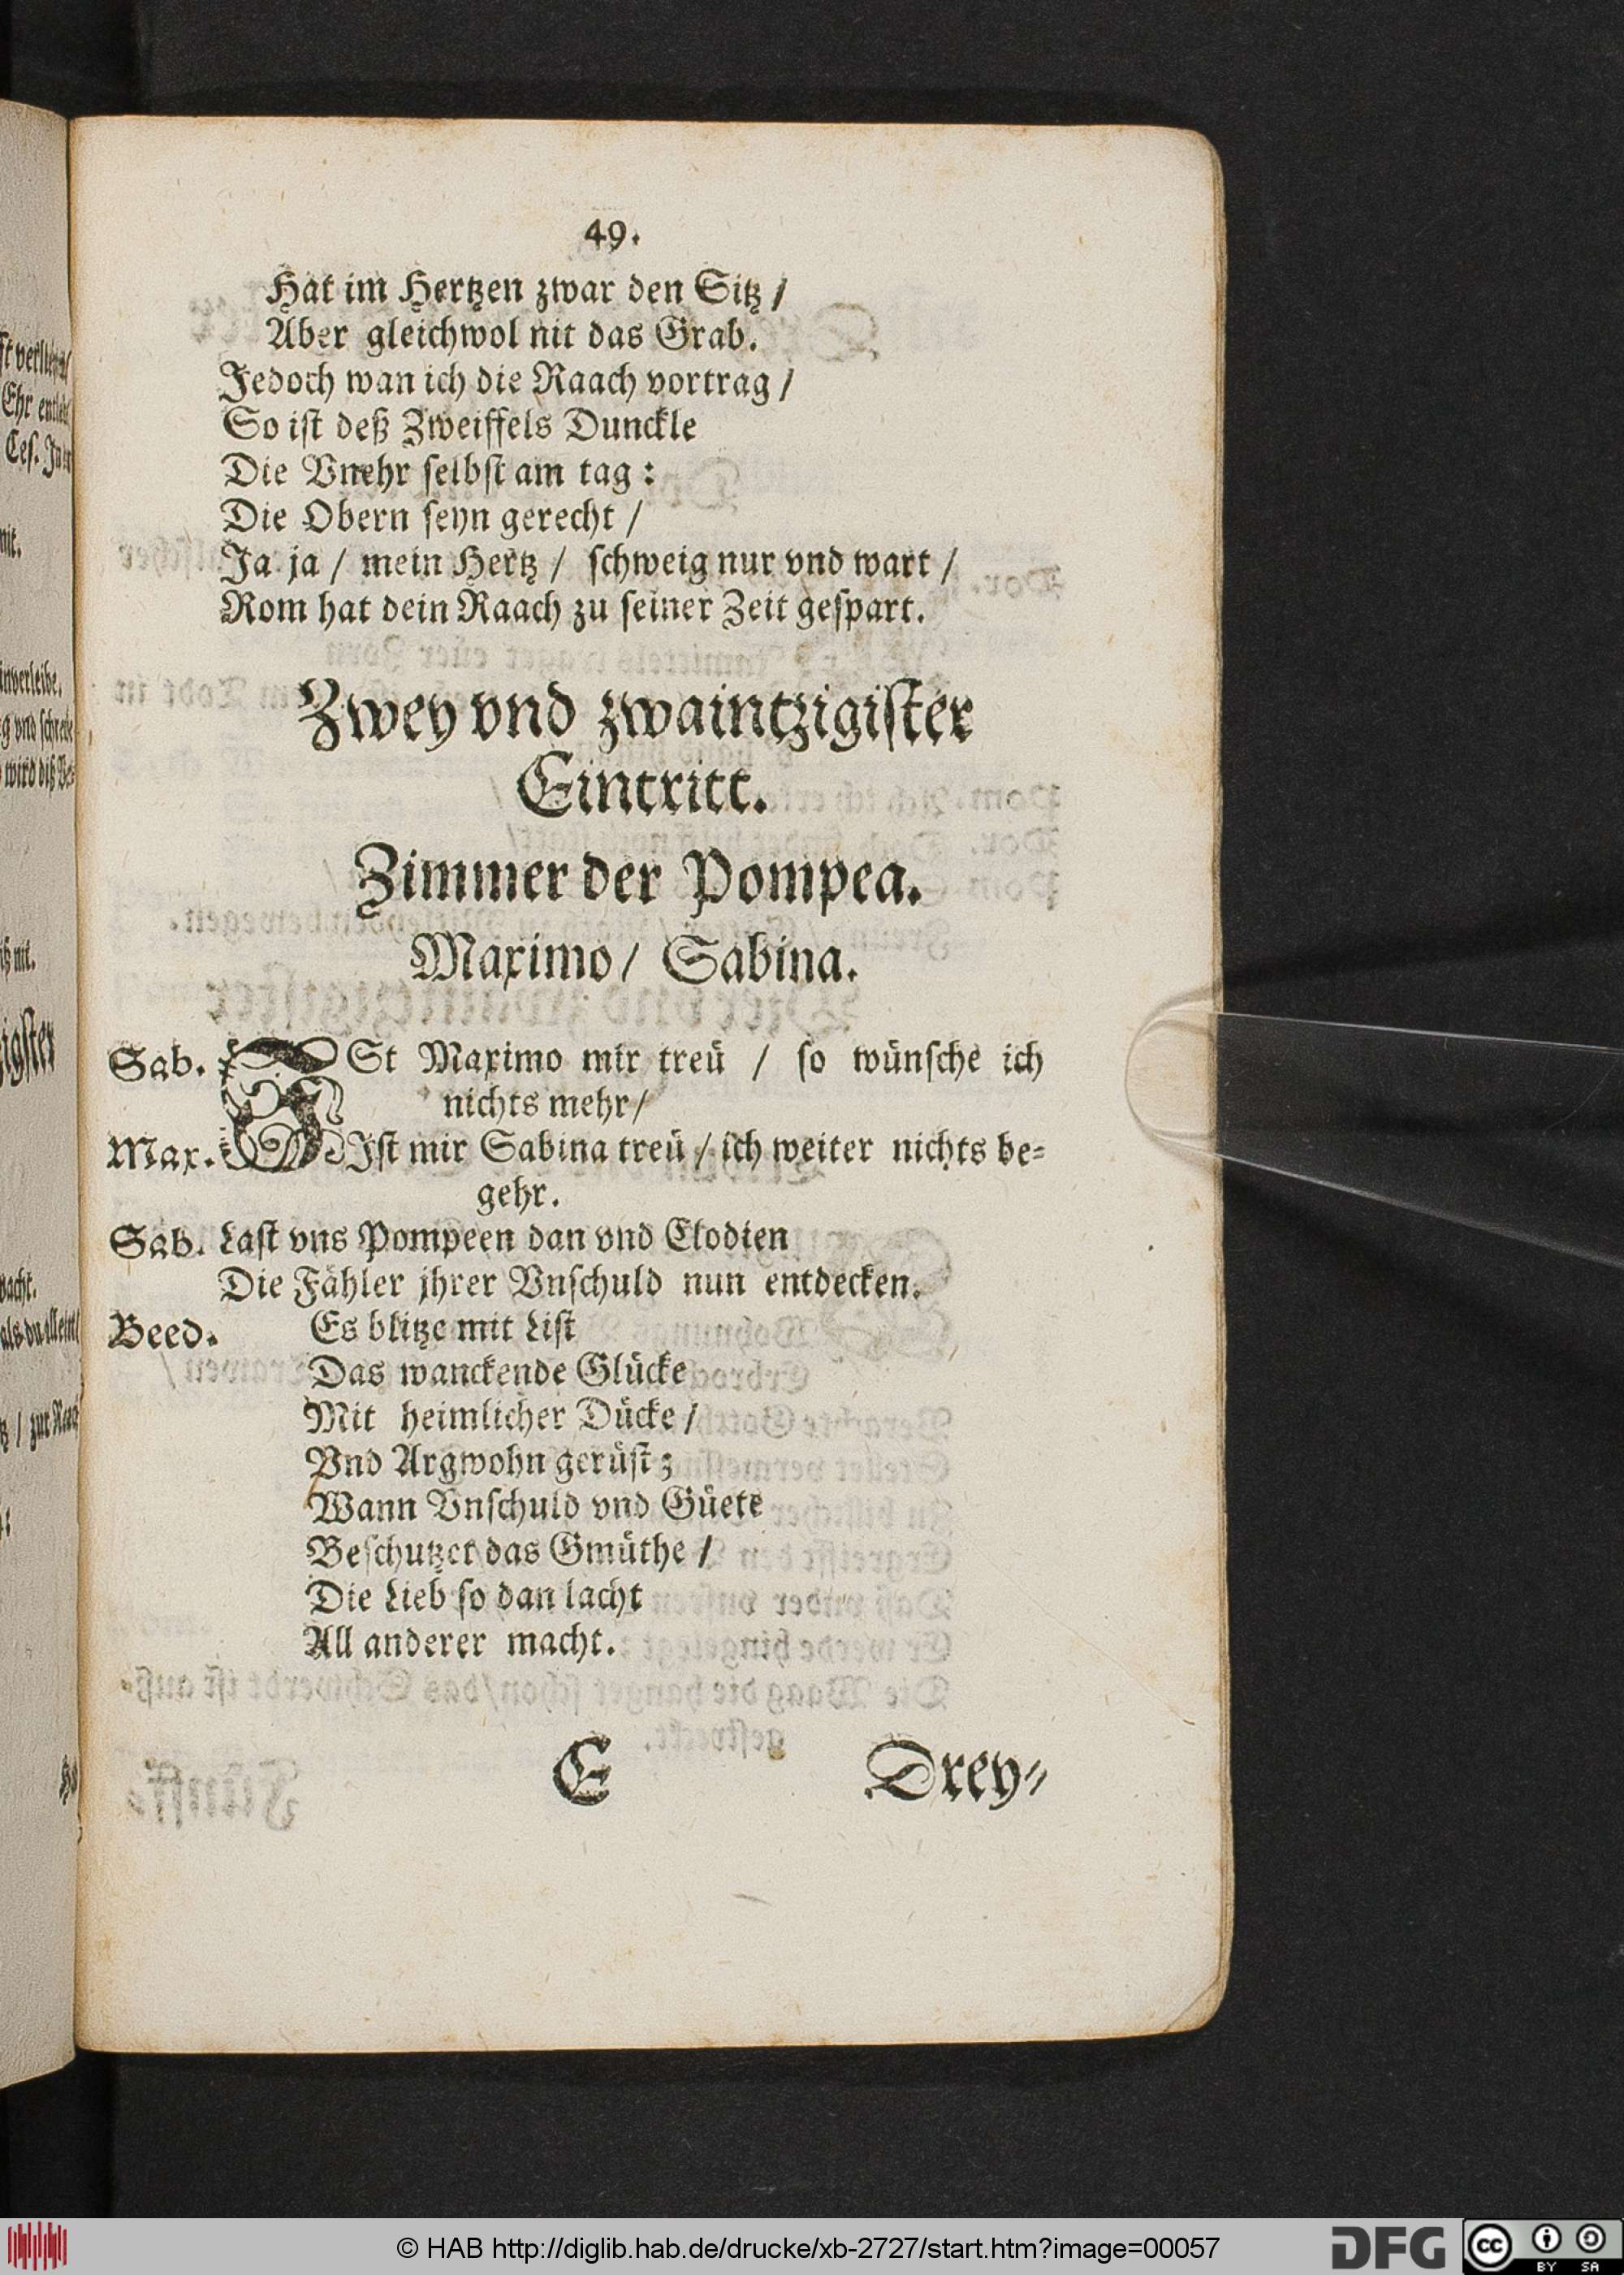 49.
Hat im Hertzen zwar den Sitz /
Aber gleichwol nit das Grab.
Jedoch wan ich die Raach vortrag /
So iſt deß Zweiffels Dunckle
Die Vnehr ſelbſt am tag :
Die Obern ſeyn gerecht /
Ja ja / mein Hertz / ſchweig nur vnd wart /
Rom hat dein Raach zu ſeiner Zeit geſpart.
Zwey vnd zwaintzigiſter
Eintritt.
Zimmer der Pompea.
Maximo / Sabina.
Sab. ISt Maximo mir treü / ſo wünſche ich
nichts mehr /
Max. Iſt mir Sabina treü / ich weiter nichts be-
gehr.
Sab. Laſt vns Pompeen dan vnd Clodien
Die Fähler jhrer Vnſchuld nun entdecken.
Beed. Es blitze mit Liſt
Das wanckende Glücke
Mit heimlicher Dücke /
Vnd Argwohn gerüſt ;
Wann Vnſchuld vnd Güete
Beſchutzet das Gmüthe /
Die Lieb ſo dan lacht
All anderer macht.
E Drey-
© HAB http://diglib.hab.de/drucke/xb-2727/start.htm?image=00057
DFG
cc BY SA